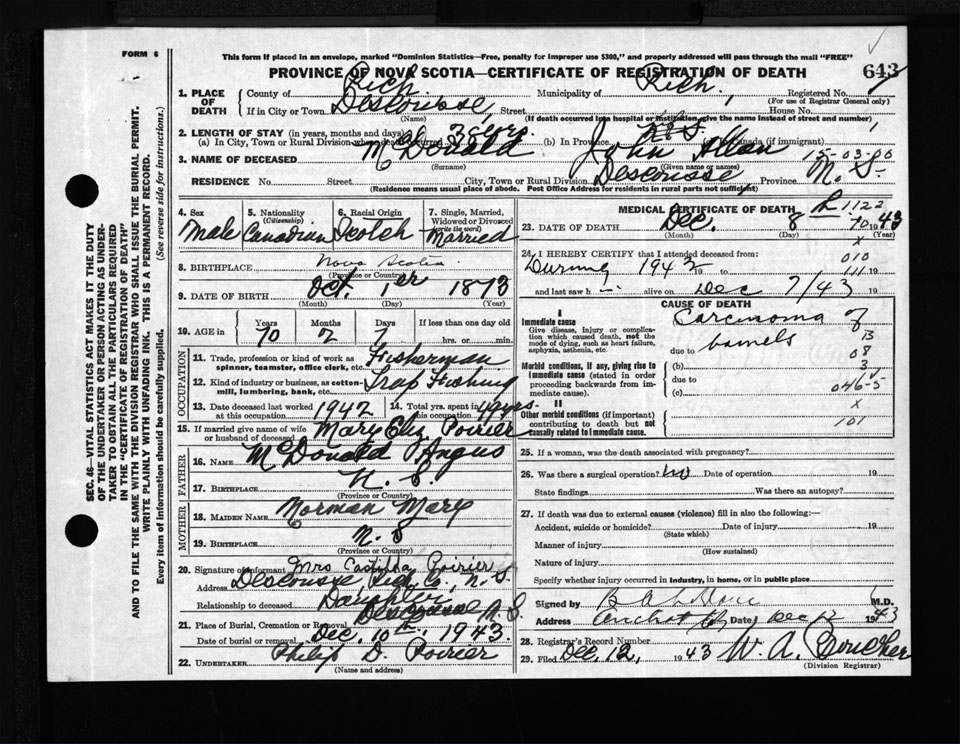 FORM 6
This form if placed in an envelope, marked "Dominion Statistics—Free, penalty for improper use $300," and properly addressed will pass through the mail "FREE"
PROVINCE OF NOVA SCOTIA—CERTIFICATE OF REGISTRATION OF DEATH 643
1. PLACE OF DEATH County of Rich. Municipality of Rich. Registered No.
(For use of Registrar General only)
If in City or Town Descousse, Street House No.
(Name) (If death occurred in a hospital or institution, give the name instead of street and number)
2. LENGTH OF STAY (in years, months and days)
(a) In City, Town or Rural Division where death occurred (b) In Province Canada (if immigrant)
3. NAME OF DECEASED McDonald John Allan
(Surname) (Given name or names)
15-03-80
RESIDENCE No. Street City, Town or Rural Division Descousse Province N. S.
(Residence means usual place of abode. Post Office Address for residents in rural parts not sufficient)
4. Sex Male
5. Nationality (Citizenship) Canadian
6. Racial Origin Scotch
7. Single, Married, Widowed or Divorced (write the word) Married
8. BIRTHPLACE Nova Scotia
(Province or Country)
9. DATE OF BIRTH Oct. 1er 1873
(Month) (Day) (Year)
10. AGE in Years 70 Months 2 Days 7 If less than one day old
hrs. or min.
OCCUPATION
11. Trade, profession or kind of work as spinner, teamster, office clerk, etc. Fisherman
12. Kind of industry or business, as cotton-mill, lumbering, bank, etc. Trap Fishing
13. Date deceased last worked at this occupation 1942
14. Total yrs. spent in this occupation yrs.
15. If married give name of wife or husband of deceased Mary Eliz Poirier
FATHER
16. NAME McDonald Angus
17. BIRTHPLACE N. S.
(Province or Country)
MOTHER
18. MAIDEN NAME Norman Mary
19. BIRTHPLACE N. S
(Province or Country)
20. Signature of informant Mrs Poirier
Address Descousse Rich. Co., N. S.
Relationship to deceased Daughter
21. Place of Burial, Cremation or Removal Descousse N. S.
Date of burial or removal Dec. 10th, 1943.
22. UNDERTAKER Philip D. Poirier
(Name and address)
MEDICAL CERTIFICATE OF DEATH
1122
23. DATE OF DEATH Dec. 8 1943
(Month) (Day) (Year)
70
24. I HEREBY CERTIFY that I attended deceased from:
x 010
During 1942 19 to 111 19
and last saw h alive on Dec 7/43 19
CAUSE OF DEATH
I
Immediate cause
Give disease, injury or complication which caused death, not the mode of dying, such as heart failure, asphyxia, asthenia, etc.
Carcinoma of
due to bowels
13
08
Morbid conditions, if any, giving rise to immediate cause (stated in order proceeding backwards from immediate cause).
(b) 3
due to
(c) 046-5
x
II
Other morbid conditions (if important) contributing to death but not causally related to immediate cause.
101
25. If a woman, was the death associated with pregnancy?
26. Was there a surgical operation? no Date of operation 19
State findings Was there an autopsy?
27. If death was due to external causes (violence) fill in also the following:—
Accident, suicide or homicide? Date of injury 19
(State which)
Manner of injury
(How sustained)
Nature of injury
Specify whether injury occurred in industry, in home, or in public place
Signed by M.D.
Address Date Dec 12 1943
28. Registrar's Record Number
29. Filed Dec. 12, 1943 W. A. Boucher
(Division Registrar)
SEC. 46—VITAL STATISTICS ACT MAKES IT THE DUTY
OF THE UNDERTAKER OR PERSON ACTING AS UNDERTAKER
TO OBTAIN ALL THE PARTICULARS REQUIRED
IN THE "CERTIFICATE OF REGISTRATION OF DEATH"
AND TO FILE THE SAME WITH THE DIVISION REGISTRAR WHO SHALL ISSUE THE BURIAL PERMIT.
WRITE PLAINLY WITH UNFADING INK. THIS IS A PERMANENT RECORD.
Every item of information should be carefully supplied. (See reverse side for instructions.)